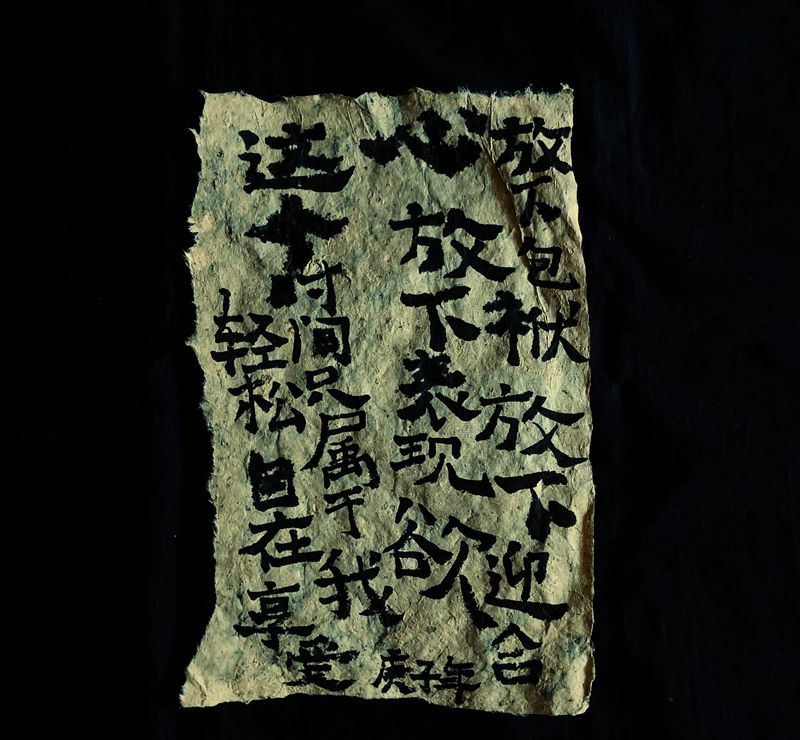 放下包袱放下迎合
心放下表现欲
这个时间只属于我
轻松自在享受
庚子年